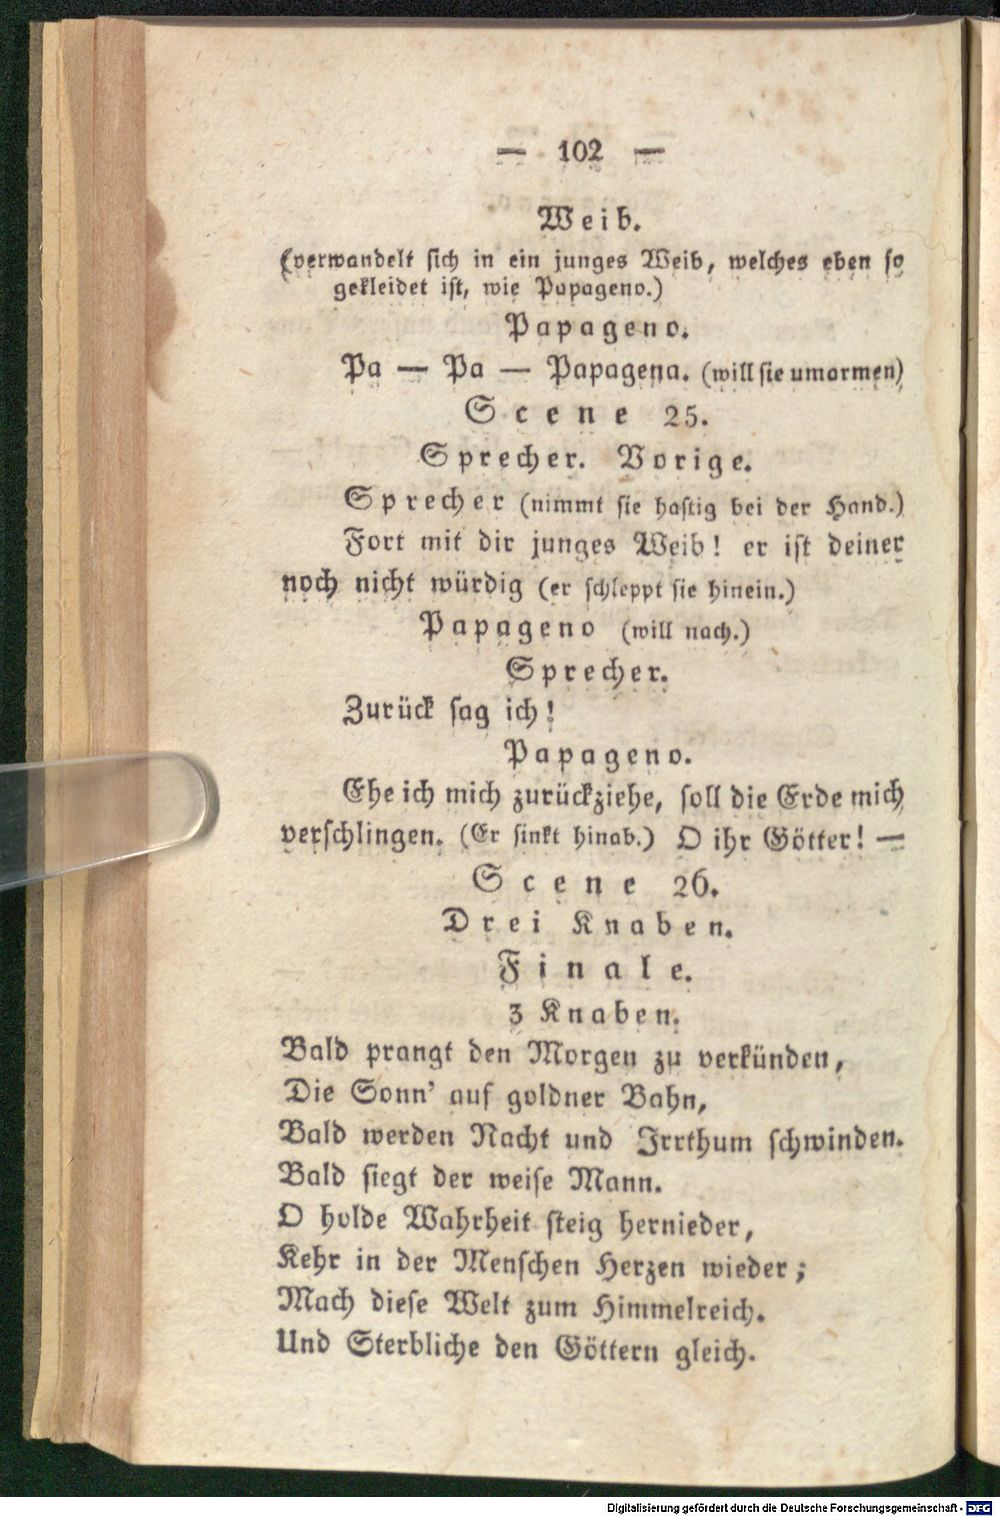 — 102 —
Weib.
(verwandelt sich in ein junges Weib, welches eben so
gekleidet ist, wie Papageno.)
Papageno.
Pa — Pa — Papagena. (will sie umarmen)
Scene 25.
Sprecher. Vorige.
Sprecher (nimmt sie hastig bei der Hand.)
Fort mit dir junges Weib! er ist deiner
noch nicht würdig (er schleppt sie hinein.)
Papageno (will nach.)
Sprecher.
Zurück sag ich!
Papageno.
Ehe ich mich zurückziehe, soll die Erde mich
verschlingen. (Er sinkt hinab.) O ihr Götter! —
Scene 26.
Drei Knaben.
Finale.
3 Knaben.
Bald prangt den Morgen zu verkünden,
Die Sonn' auf goldner Bahn,
Bald werden Nacht und Irrthum schwinden.
Bald siegt der weise Mann.
O holde Wahrheit steig hernieder,
Kehr in der Menschen Herzen wieder;
Mach diese Welt zum Himmelreich.
Und Sterbliche den Göttern gleich.
Digitalisierung gefördert durch die Deutsche Forschungsgemeinschaft - DFG